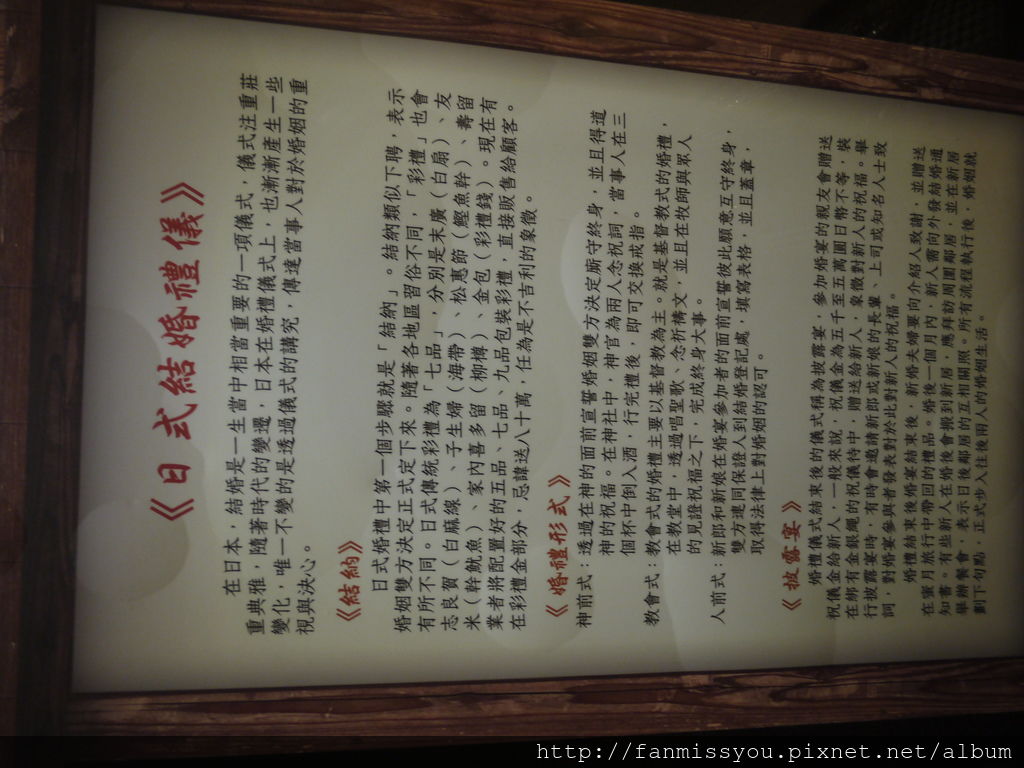 《日式結婚禮儀》
在日本，結婚是一生當中相當重要的一項儀式，儀式注重莊
重典雅，隨著時代的變遷，日本在婚禮儀式上，也漸漸產生一些
變化，唯一不變的是透過儀式的講究，傳達當事人對於婚姻的重
視與決心。
《結納》
日式婚禮中第一個步驟就是「結納」。結納類似下聘，表示
婚姻雙方決定正式定下來。隨著各地區習俗不同，「彩禮」也會
有所不同。日式傳統彩禮為「七品」，分別是末廣（白扇）、友
志良賀（白麻線）、子生婦（海帶）、松惠節（鰹魚幹）、壽留
米（幹魷魚）、家內喜多留（柳樽）、金包（彩禮錢）。現在有
業者將配置好的五品、七品、九品包裝彩禮，直接販售給顧客。
在彩禮金部分，忌諱送八十萬，任為是不吉利的象徵。
《婚禮形式》
神前式：透過在神的面前宣誓婚姻雙方決定廝守終身，並且得道
神的祝福。在神社中，神官為兩人念祝詞，當事人在三
個杯中倒入酒，行完禮後，即可交換戒指。
教會式：教會式的婚禮主要以基督教為主。就是基督教式的婚禮，
在教堂中，透過唱聖歌、念祈禱文，並且在牧師與眾人
的見證祝福之下，完成終身大事。
人前式：新郎和新娘在婚宴參加者的面前宣誓彼此願意互守終身，
雙方連同保證人到結婚登記處，填寫表格，並且蓋章，
取得法律上對婚姻的認可。
《披露宴》
婚禮儀式結束後的儀式稱為披露宴，參加婚宴的親友會贈送
祝儀金給新人，一般來說，祝儀金為五千至五萬圓日幣不等，裝
在綁有金銀繩的祝儀待中，贈送給新人，象徵對新人的祝福。舉
行披露宴時，有時會邀請新郎或新娘的長輩、上司或知名人士致
詞，對婚宴參與者發表對於此對新人的祝福。
婚禮結束後婚宴結束後，新婚夫婦要向介紹人致謝，並贈送
在蜜月旅行中帶回的禮品。婚後一個月內，新人需向外發結婚通
知書。有些新人在婚後會搬到新居，應拜訪周圍鄰居，並在新居
舉辦餐會，表示日後鄰居的互相關照。所有流程執行後，婚姻就
劃下句點，正式步入往後兩人的婚姻生活。
http://fanmissyou.pixnet.net/album